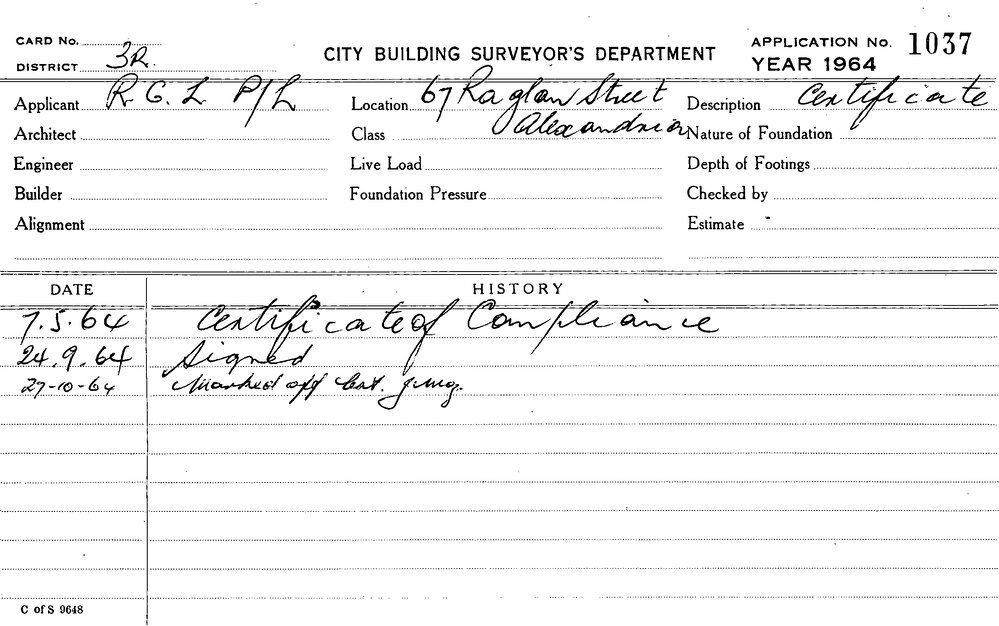 CARD No.
DISTRICT 3R.
CITY BUILDING SURVEYOR'S DEPARTMENT
APPLICATION No. 1037
YEAR 1964
Applicant R. G. L P/L
Location 67 Raglan Street
Alexandria
Description Certificate
Architect
Class
Nature of Foundation
Engineer
Live Load
Depth of Footings
Builder
Foundation Pressure
Checked by
Alignment
Estimate -
DATE HISTORY
7.5.64 Certificate of Compliance
24.9.64 Signed
27-10-64 Marked off
C of S 9648